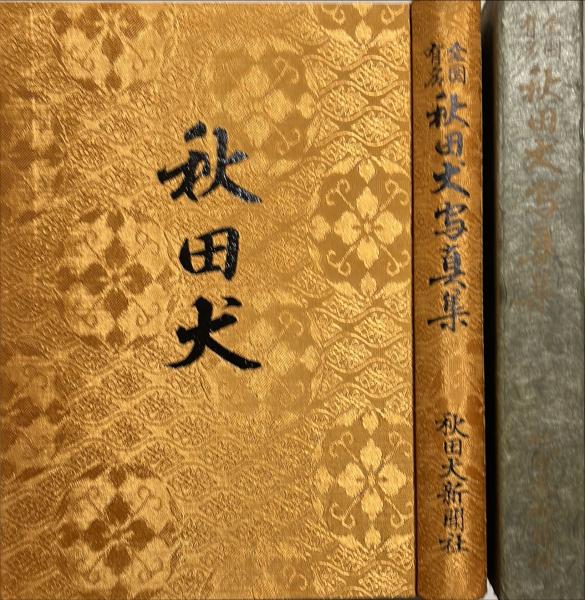 秋田犬
全国
有名
秋田犬写真集
秋田犬新聞社
全国
有名
秋田犬写真集